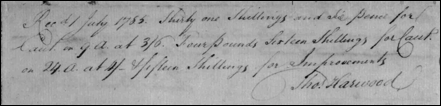 Recd 1 July 1785. Thirty one Shillings and Six pence for
Caut. on 9 A. at 3/6. Four pounds Sixteen Shillings for Caut.
on 24 A at 4/- & fifteen Shillings for Improvements
Thos. Harwood